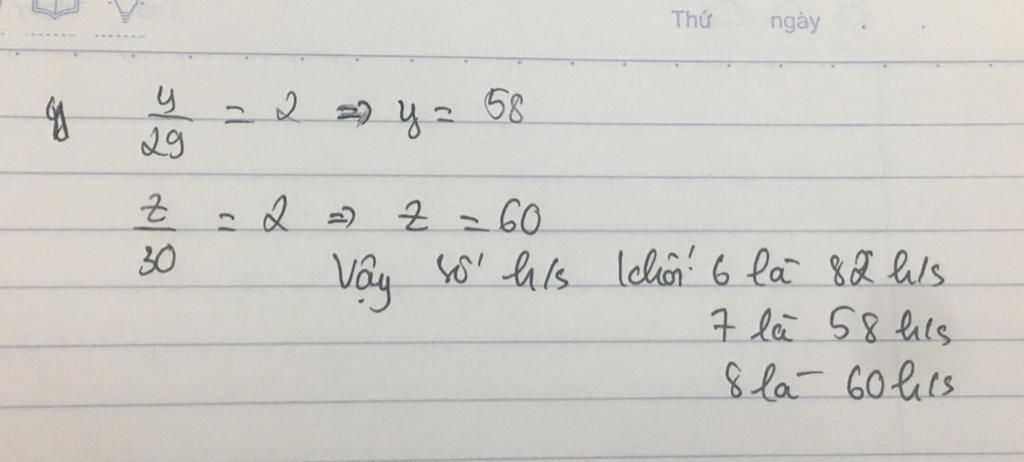 Thứ ngày . .
y/29 = 2 => y = 58
z/30 = 2 => z = 60
Vậy số h/s khối 6 là 82 h/s
7 là 58 h/s
8 là 60 h/s